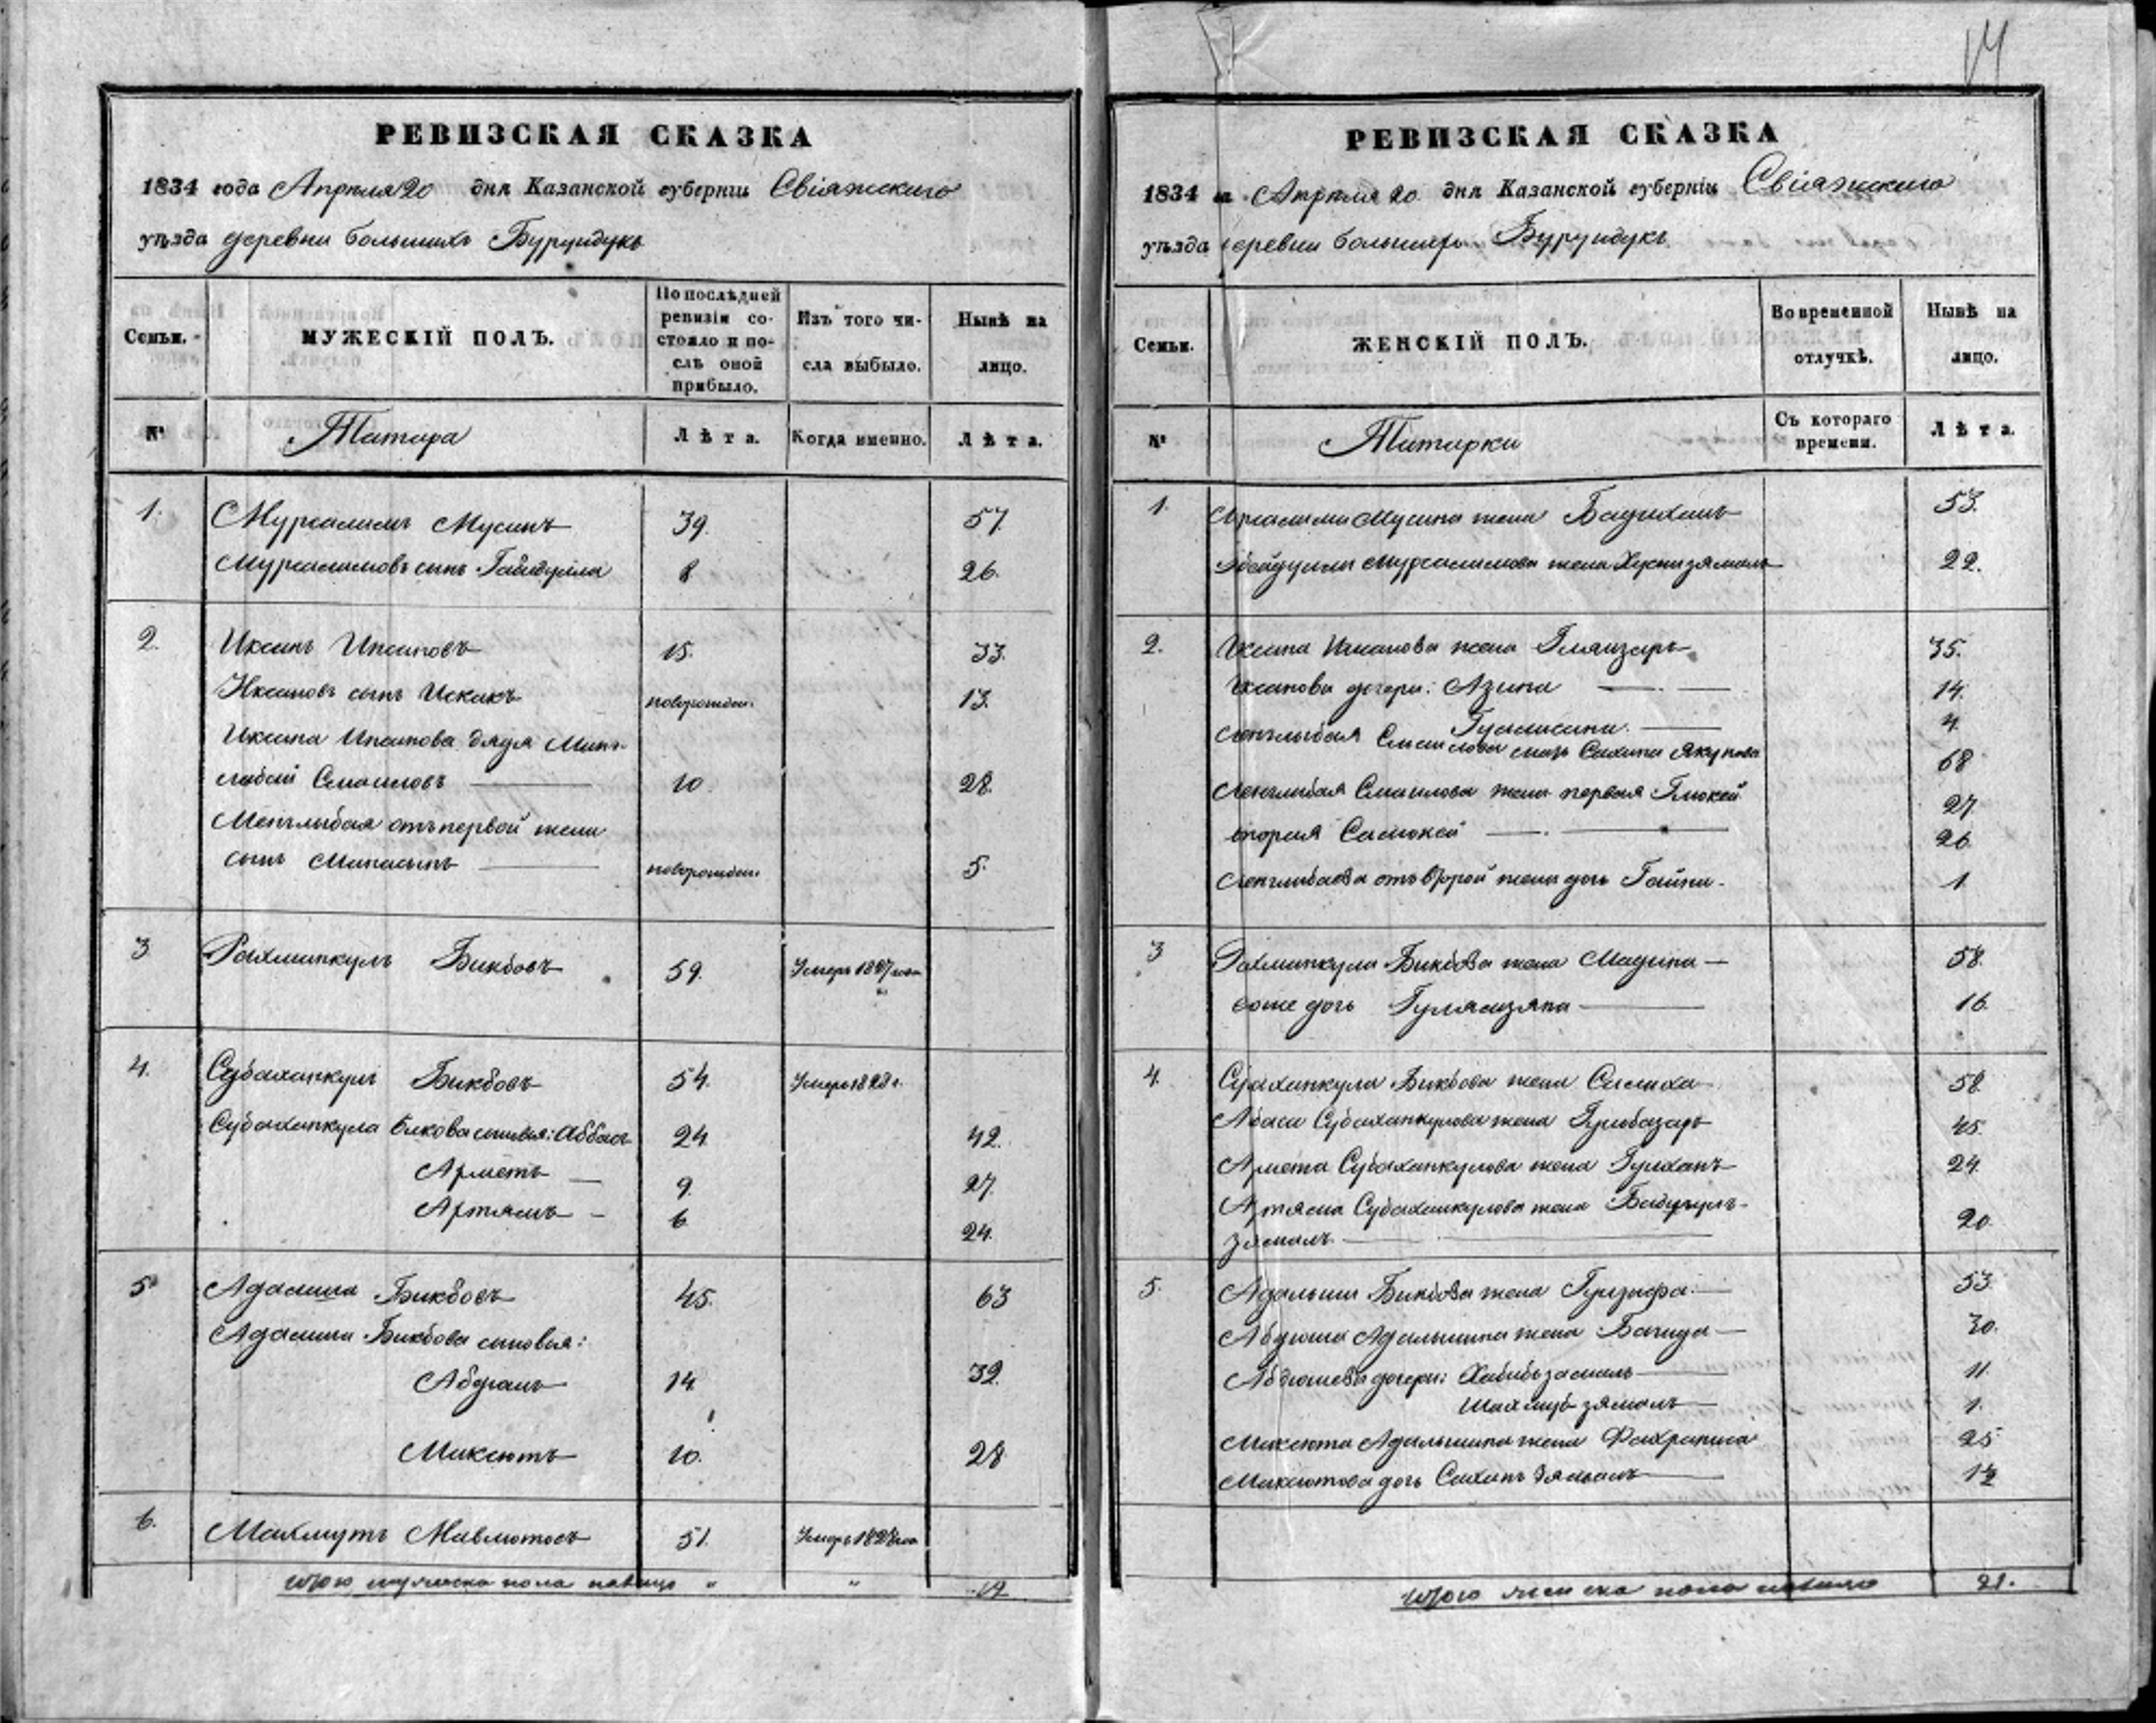 14
РЕВИЗСКАЯ СКАЗКА
1834 года Апреля 20 дня Казанской губерніи Свіяжского
уѣзда деревни большихъ Бурундукъ
Семьи.
МУЖЕСКІЙ ПОЛЪ.
По послѣдней ревизіи состояло и послѣ оной прибыло.
Изъ того числа выбыло.
Нынѣ на лицо.
№
Татара
Лѣта.
Когда именно.
Лѣта.
1. Мурсалимъ Мусинъ 39. 57
Мурсалимовъ сынъ Габидулла 8 26.
2. Иксанъ Ипсановъ 15. 33.
Иксановъ сынъ Искакъ новорожден. 13.
Иксана Ипсанова дядя Минг-
лабай Смаиловъ 10. 28.
Менглыбая отъ первой жены
сынъ новорожден. 5.
3 Рахманкулъ Бикбовъ 59. Умеръ 1827 года
4. Субаханкулъ Бикбовъ 54. Умеръ 1828 г.
Субаханкула Бикбова сыновья: Аббасъ 24 42.
Ахметъ 9. 27.
Артямъ 6 24.
5 Адалша Бикбовъ 45. 63
Адалши Бикбова сыновья:
Абдюшъ 14. 32.
Максютъ 10. 28
6. Махмутъ Мавлютовъ 51. Умеръ 1828 года
Итого мужеска пола налицо " " 12
РЕВИЗСКАЯ СКАЗКА
1834 Апреля 20 дня Казанской губерніи Свіяжского
уѣзда деревни большихъ Бурундукъ
Семьи.
ЖЕНСКІЙ ПОЛЪ.
Во временной отлучкѣ.
Нынѣ на лицо.
№
Татарки
Съ котораго времени.
Лѣта.
1. Мурсалима Мусина жена Бадиханъ 53.
Габейдуллы Мурсалимова жена Хуснизямалъ 22.
2. Иксана Ипсанова жена 35.
Иксанова дочери: Азина 14.
4.
Менглыбая Смаилова мать Сахипа Якупова 68
Менглыбая Смаилова жена первая 27
вторая Салюкей 26.
Менглыбаева отъ второй жены дочь Гайни 1
3 Рахманкула Бикбова жена Мадина 58.
его же дочь Гулямзяпа 16.
4. Субаханкула Бикбова жена Салиха 58.
Абаса Субаханкулова жена Гулбазаръ 45.
Ахмета Субаханкулова жена Гулханъ 24.
Артяма Субаханкулова жена Бадигулъ-
зямалъ 20.
5. Адальши Бикбова жена Гулзифа 53.
Абдюша Адальшина жена Багида 30.
Абдюшевы дочери: Хабибъзамалъ 11.
зямалъ 1.
Максюта Адальшина жена Фахраниса 25
Максютова дочь Сахипъ Зямалъ
Итого женска пола налицо 21.